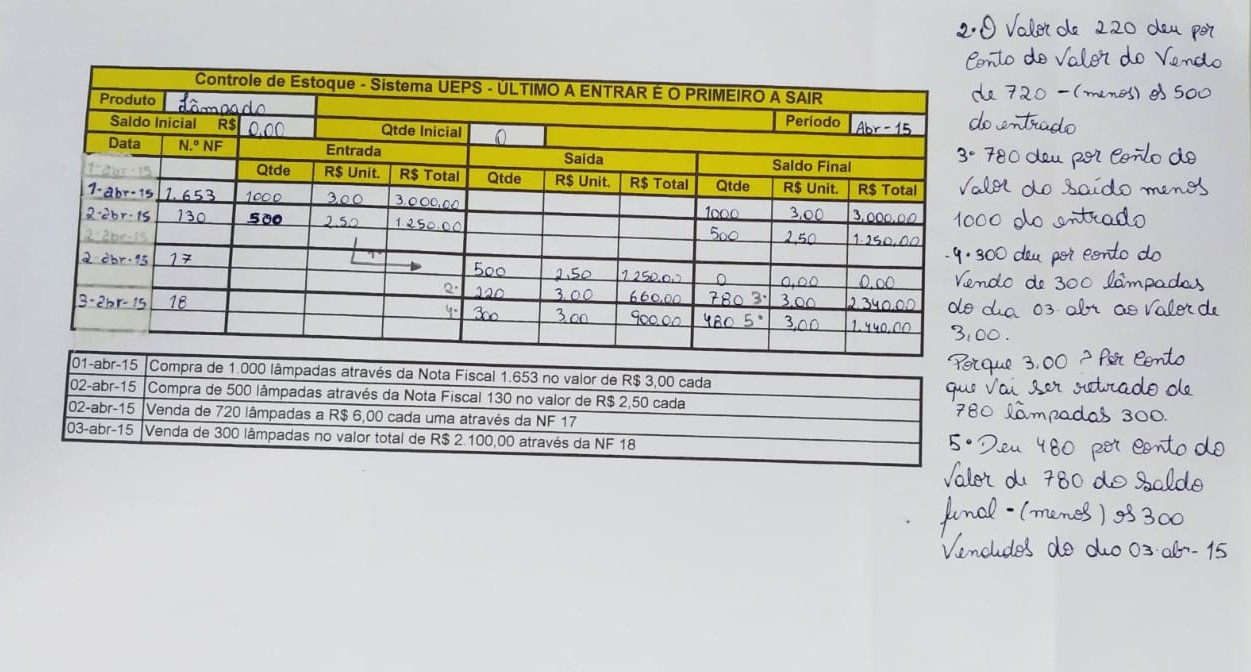 Controle de Estoque - Sistema UEPS - ÚLTIMO A ENTRAR É O PRIMEIRO A SAIR
Produto Lâmpada
Período Abr-15
Saldo Inicial R$ 0,00 Qtde Inicial 0
Data N.º NF Entrada Saída Saldo Final
Qtde R$ Unit. R$ Total Qtde R$ Unit. R$ Total Qtde R$ Unit. R$ Total
1-abr-15
1-abr-15 1.653 1000 3,00 3.000,00 1000 3,00 3.000,00
2-abr-15 130 500 2,50 1.250,00 500 2,50 1.250,00
2-abr-15
2-abr-15 17 1º 500 2,50 1.250,00 0 0,00 0,00
2· 220 3,00 660,00 780 3· 3,00 2.340,00
3-abr-15 18 4· 300 3,00 900,00 480 5· 3,00 1.440,00
01-abr-15 Compra de 1.000 lâmpadas através da Nota Fiscal 1.653 no valor de R$ 3,00 cada
02-abr-15 Compra de 500 lâmpadas através da Nota Fiscal 130 no valor de R$ 2,50 cada
02-abr-15 Venda de 720 lâmpadas a R$ 6,00 cada uma através da NF 17
03-abr-15 Venda de 300 lâmpadas no valor total de R$ 2.100,00 através da NF 18
2·O Valor de 220 deu por
Conta do Valor da Venda
de 720 - (menos) os 500
da entrada
3· 780 deu por conta do
Valor da saída menos
1000 da entrada
·4·300 deu por conta da
Venda de 300 lâmpadas
do dia 03 abr ao Valor de
3,00.
Porque 3,00 ? Por Conta
que Vai ser retirado de
780 lâmpadas 300.
5· Deu 480 por conta do
Valor de 780 do Saldo
final - (menos) os 300
Vendidos do dia 03-abr-15